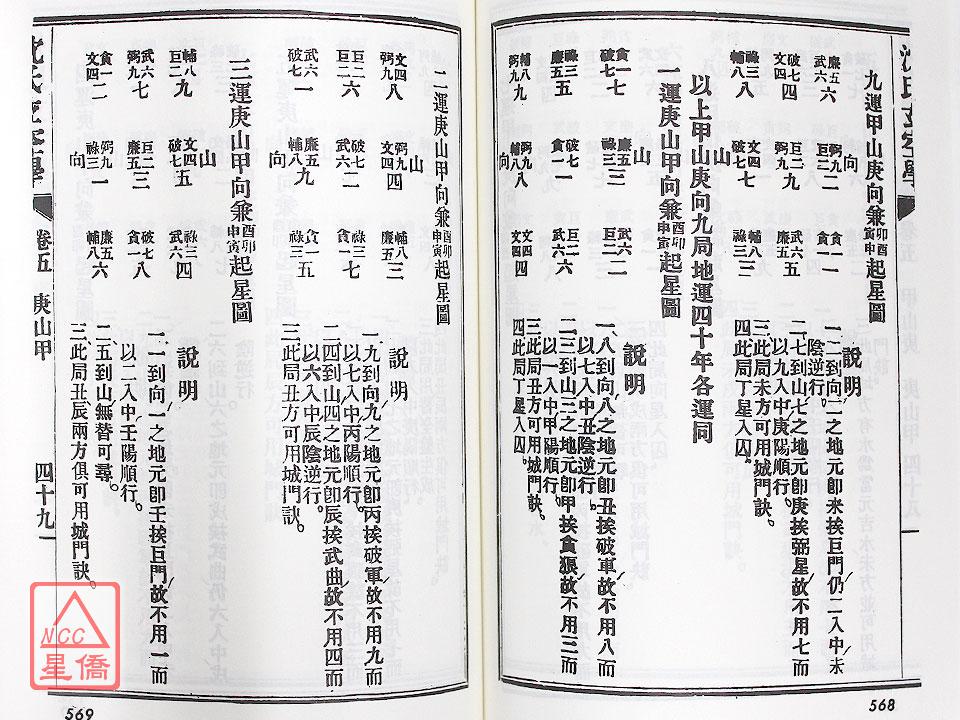 沈氏玄空學
九運甲山庚向兼卯酉寅申起星圖
向
廉五武六六 弼九巨二二 貪一貪一一
破七文四四 巨二弼九九 武六廉五五
祿三輔八八 文四破七七 輔八祿三三
山
說明
一、二到向、二之地元卽未挨巨門仍二入中、未
陰逆行。
二、七到山、七之地元卽庚挨弼星、故不用七而
以九入中、庚陽順行。
三、此局未方可用城門訣。
四、此局丁星入囚。
以上甲山庚向九局地運四十年各運同
一運庚山甲向兼酉卯申寅起星圖
山
貪一破七七 廉五祿三三 武六巨二二
祿三廉五五 破七貪一一 巨二武六六
輔八弼九九 弼九輔八八 文四文四四
向
說明
一、八到向、八之地元卽丑挨破軍、故不用八而
以七入中、丑陰逆行。
二、三到山、三之地元卽甲挨貪狼、故不用三而
以一入中、甲陽順行。
三、此局丑方可用城門訣。
四、此局丁星入囚。
568
二運庚山甲向兼酉卯申寅起星圖
山
文四弼九八 弼九文四四 輔八廉五三
巨二巨二六 破七武六二 祿三貪一七
武六破七一 廉五輔八九 貪一祿三五
向
說明
一、九到向、九之地元卽丙挨破軍、故不用九而
以七入中、丙陽順行。
二、四到山、四之地元卽辰挨武曲、故不用四而
以六入中、辰陰逆行。
三、此局丑方可用城門訣。
三運庚山甲向兼酉卯申寅起星圖
山
輔八巨二九 文四破七五 祿三武六四
武六弼九七 巨二廉五三 破七貪一八
貪一文四二 弼九祿三一 廉五輔八六
向
說明
一、一到向、一之地元卽壬挨巨門、故不用一而
以二入中、壬陽順行。
二、五到山、無替可尋。
三、此局丑、辰兩方俱可用城門訣。
沈氏玄空學 卷五 庚山甲 四十九
569
NCC
星僑